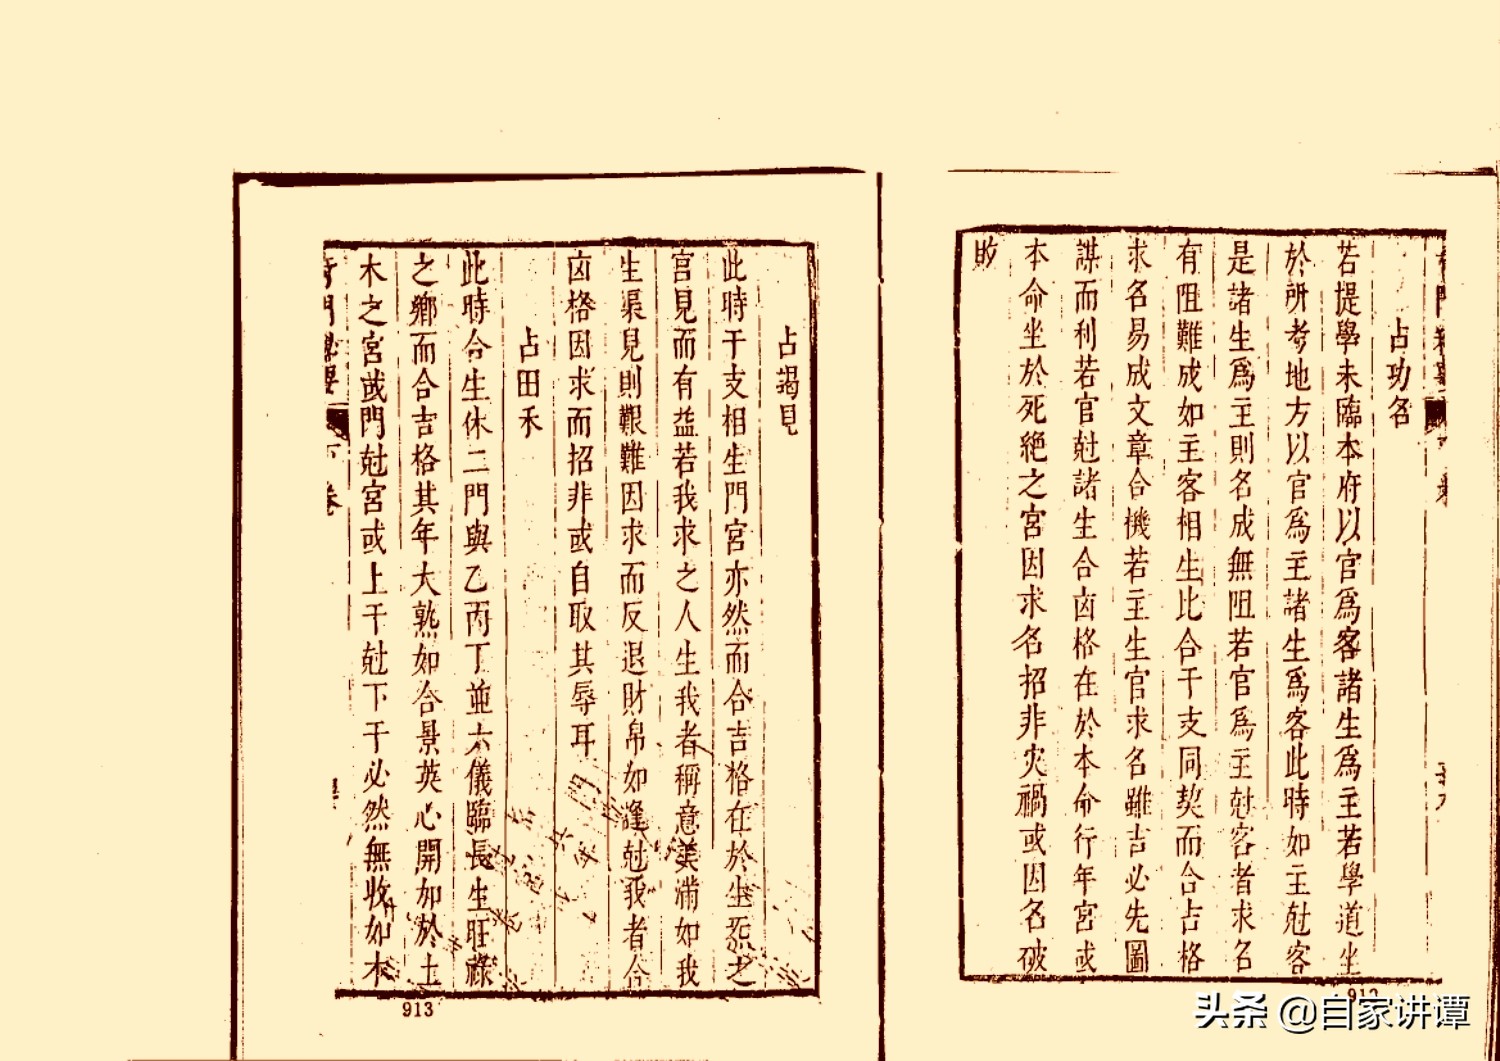 占功名
若提學未臨本府以官爲客諸生爲主若學道坐
於所考地方以官爲主諸生爲客此時如主尅客
是諸生爲主則名成無阻若官爲主尅客者求名
有阻難成如主客相生比合干支同契而合占格
求名易成文章合機若主生官求名雖吉必先圖
謀而利若官尅諸生合凶格在於本命行年宮或
本命坐於死絕之宮因求名招非灾禍或因名破
敗
912
占謁見
此時干支相生門宮亦然而合吉格在於生炁之
宮見而有益若我求之人生我者稱意美滿如我
生渠見則艱難因求而反退財帛如逢尅我者合
凶格因求而招非或自取其辱耳
占田禾
此時合生休二門與乙丙丁並六儀臨長生旺祿
之鄉而合吉格其年大熟如合景英心開加於土
木之宮或門尅宮或上干尅下干必然無收如木
奇門 要 下卷
913
头条 @自家讲谭